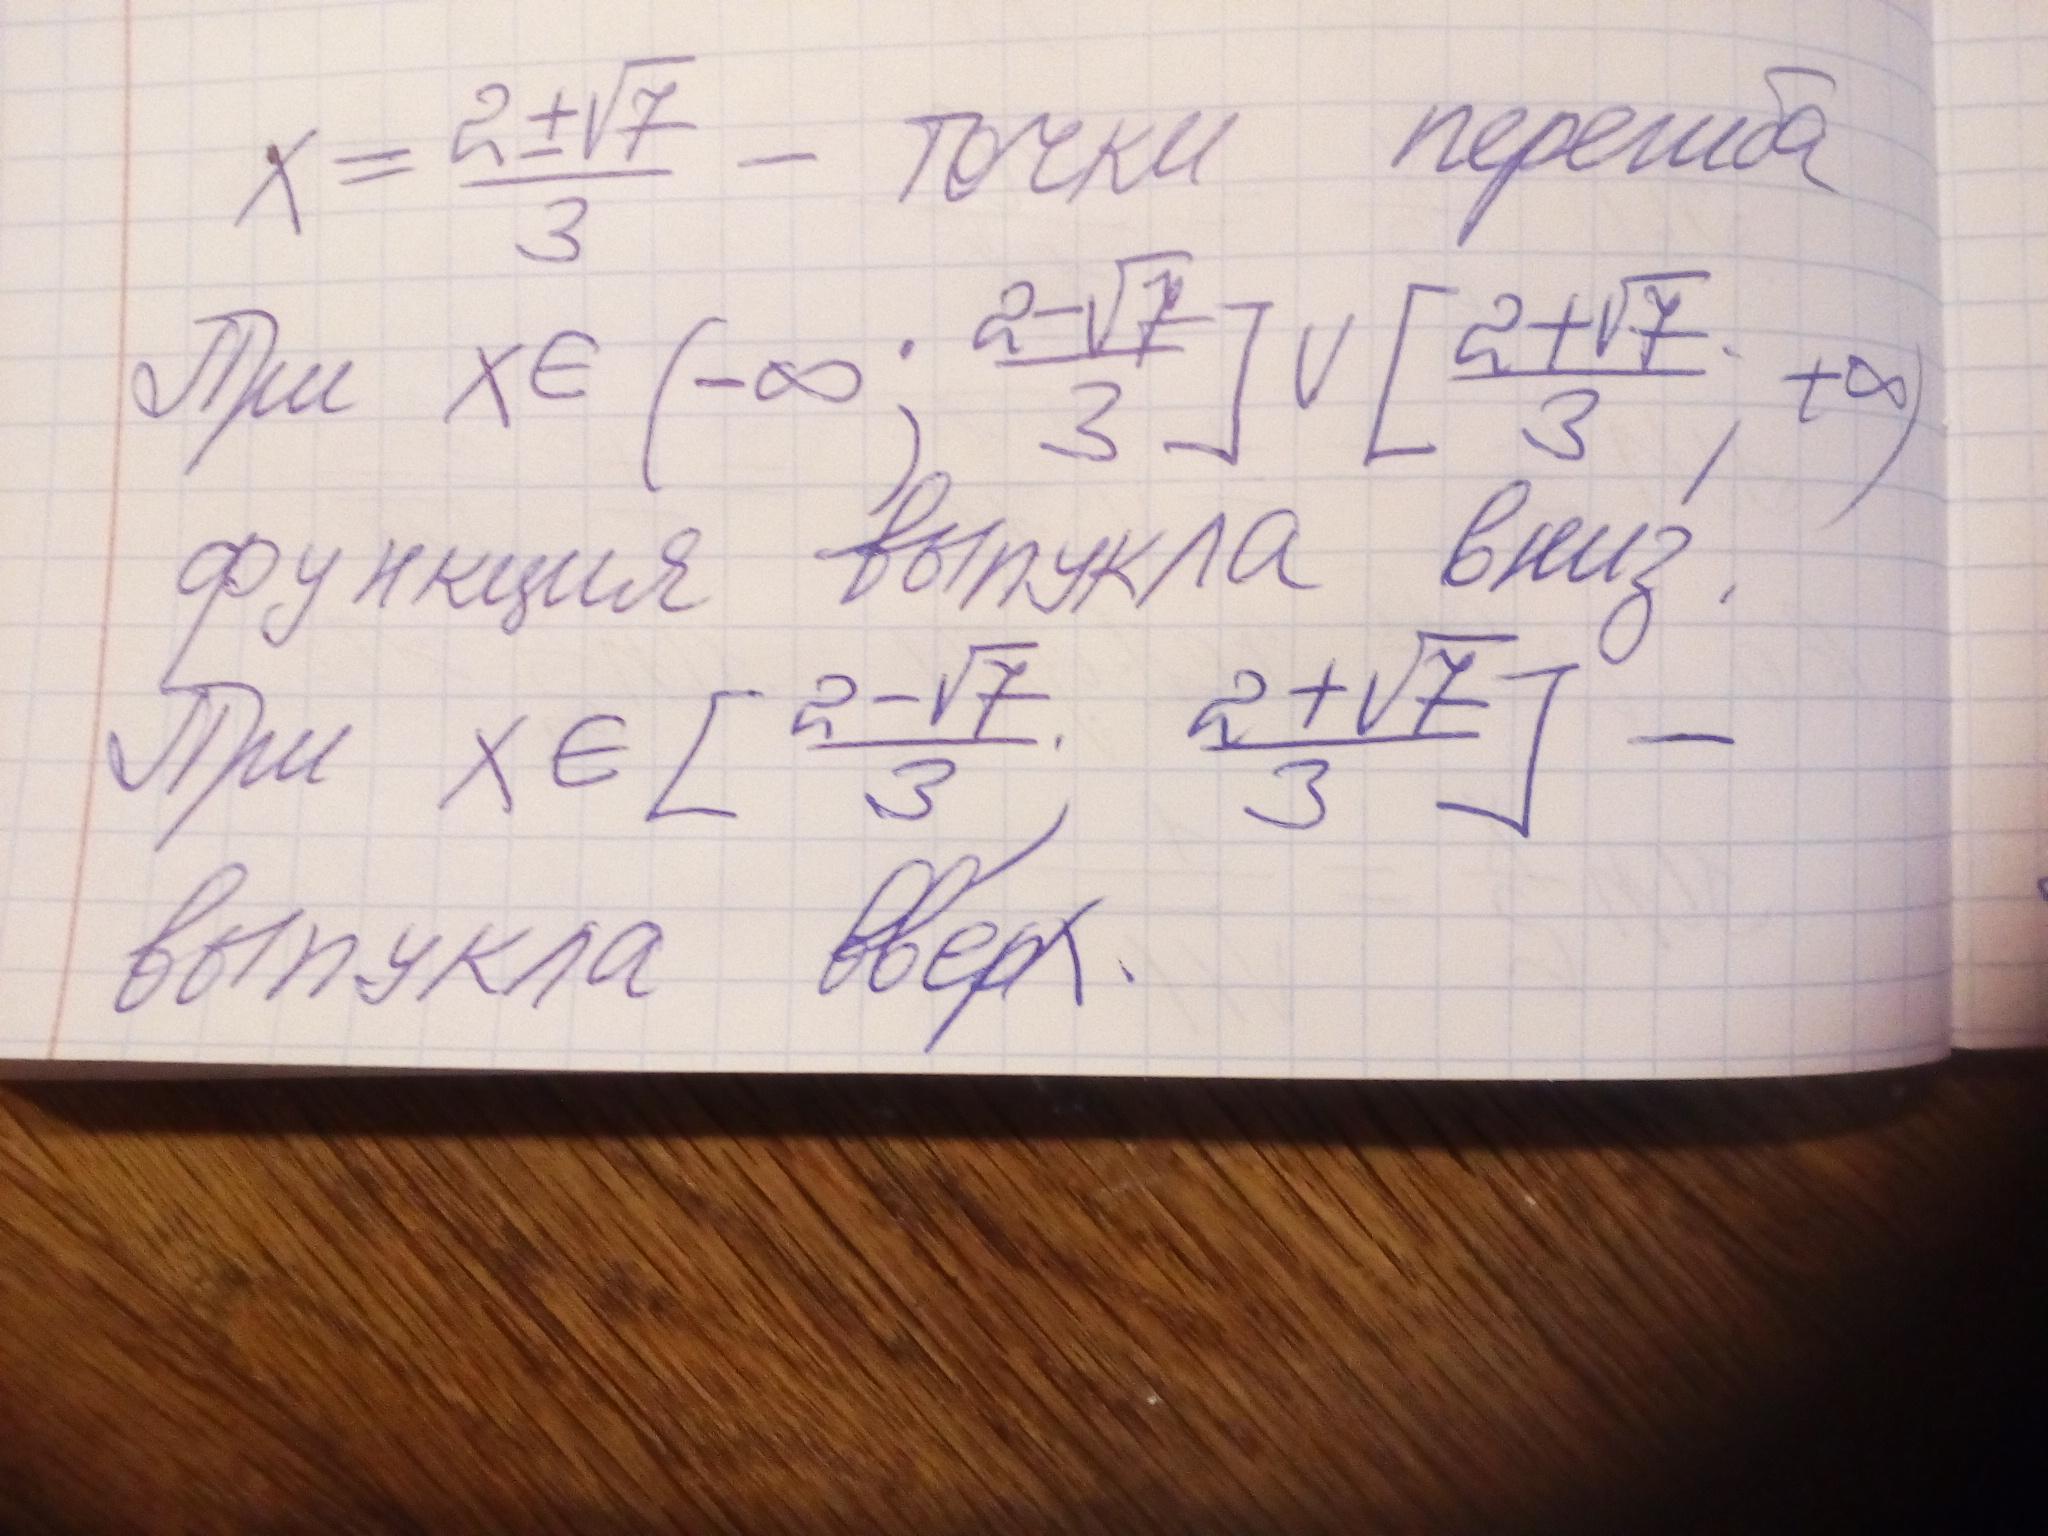 x = (2±√7)/3 – точки перегиба
При x∈ (-∞; (2-√7)/3] ∪ [(2+√7)/3; +∞)
функция выпукла вниз.
При x∈ [(2-√7)/3; (2+√7)/3] –
выпукла вверх.